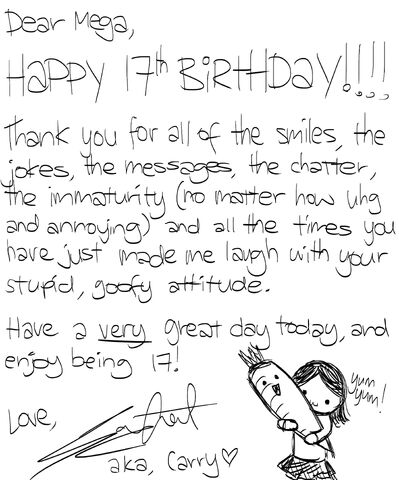 Dear Mega,
HAPPY 17th BiRTHDAY!!!!
Thank you for all of the smiles, the
jokes, the messages, the chatter,
the immaturity (no matter how uhg
and annoying) and all the times you
have just made me laugh with your
stupid, goofy attitude.
Have a very great day today, and
enjoy being 17!
yum
yum!
Love,
aka, Carry♡